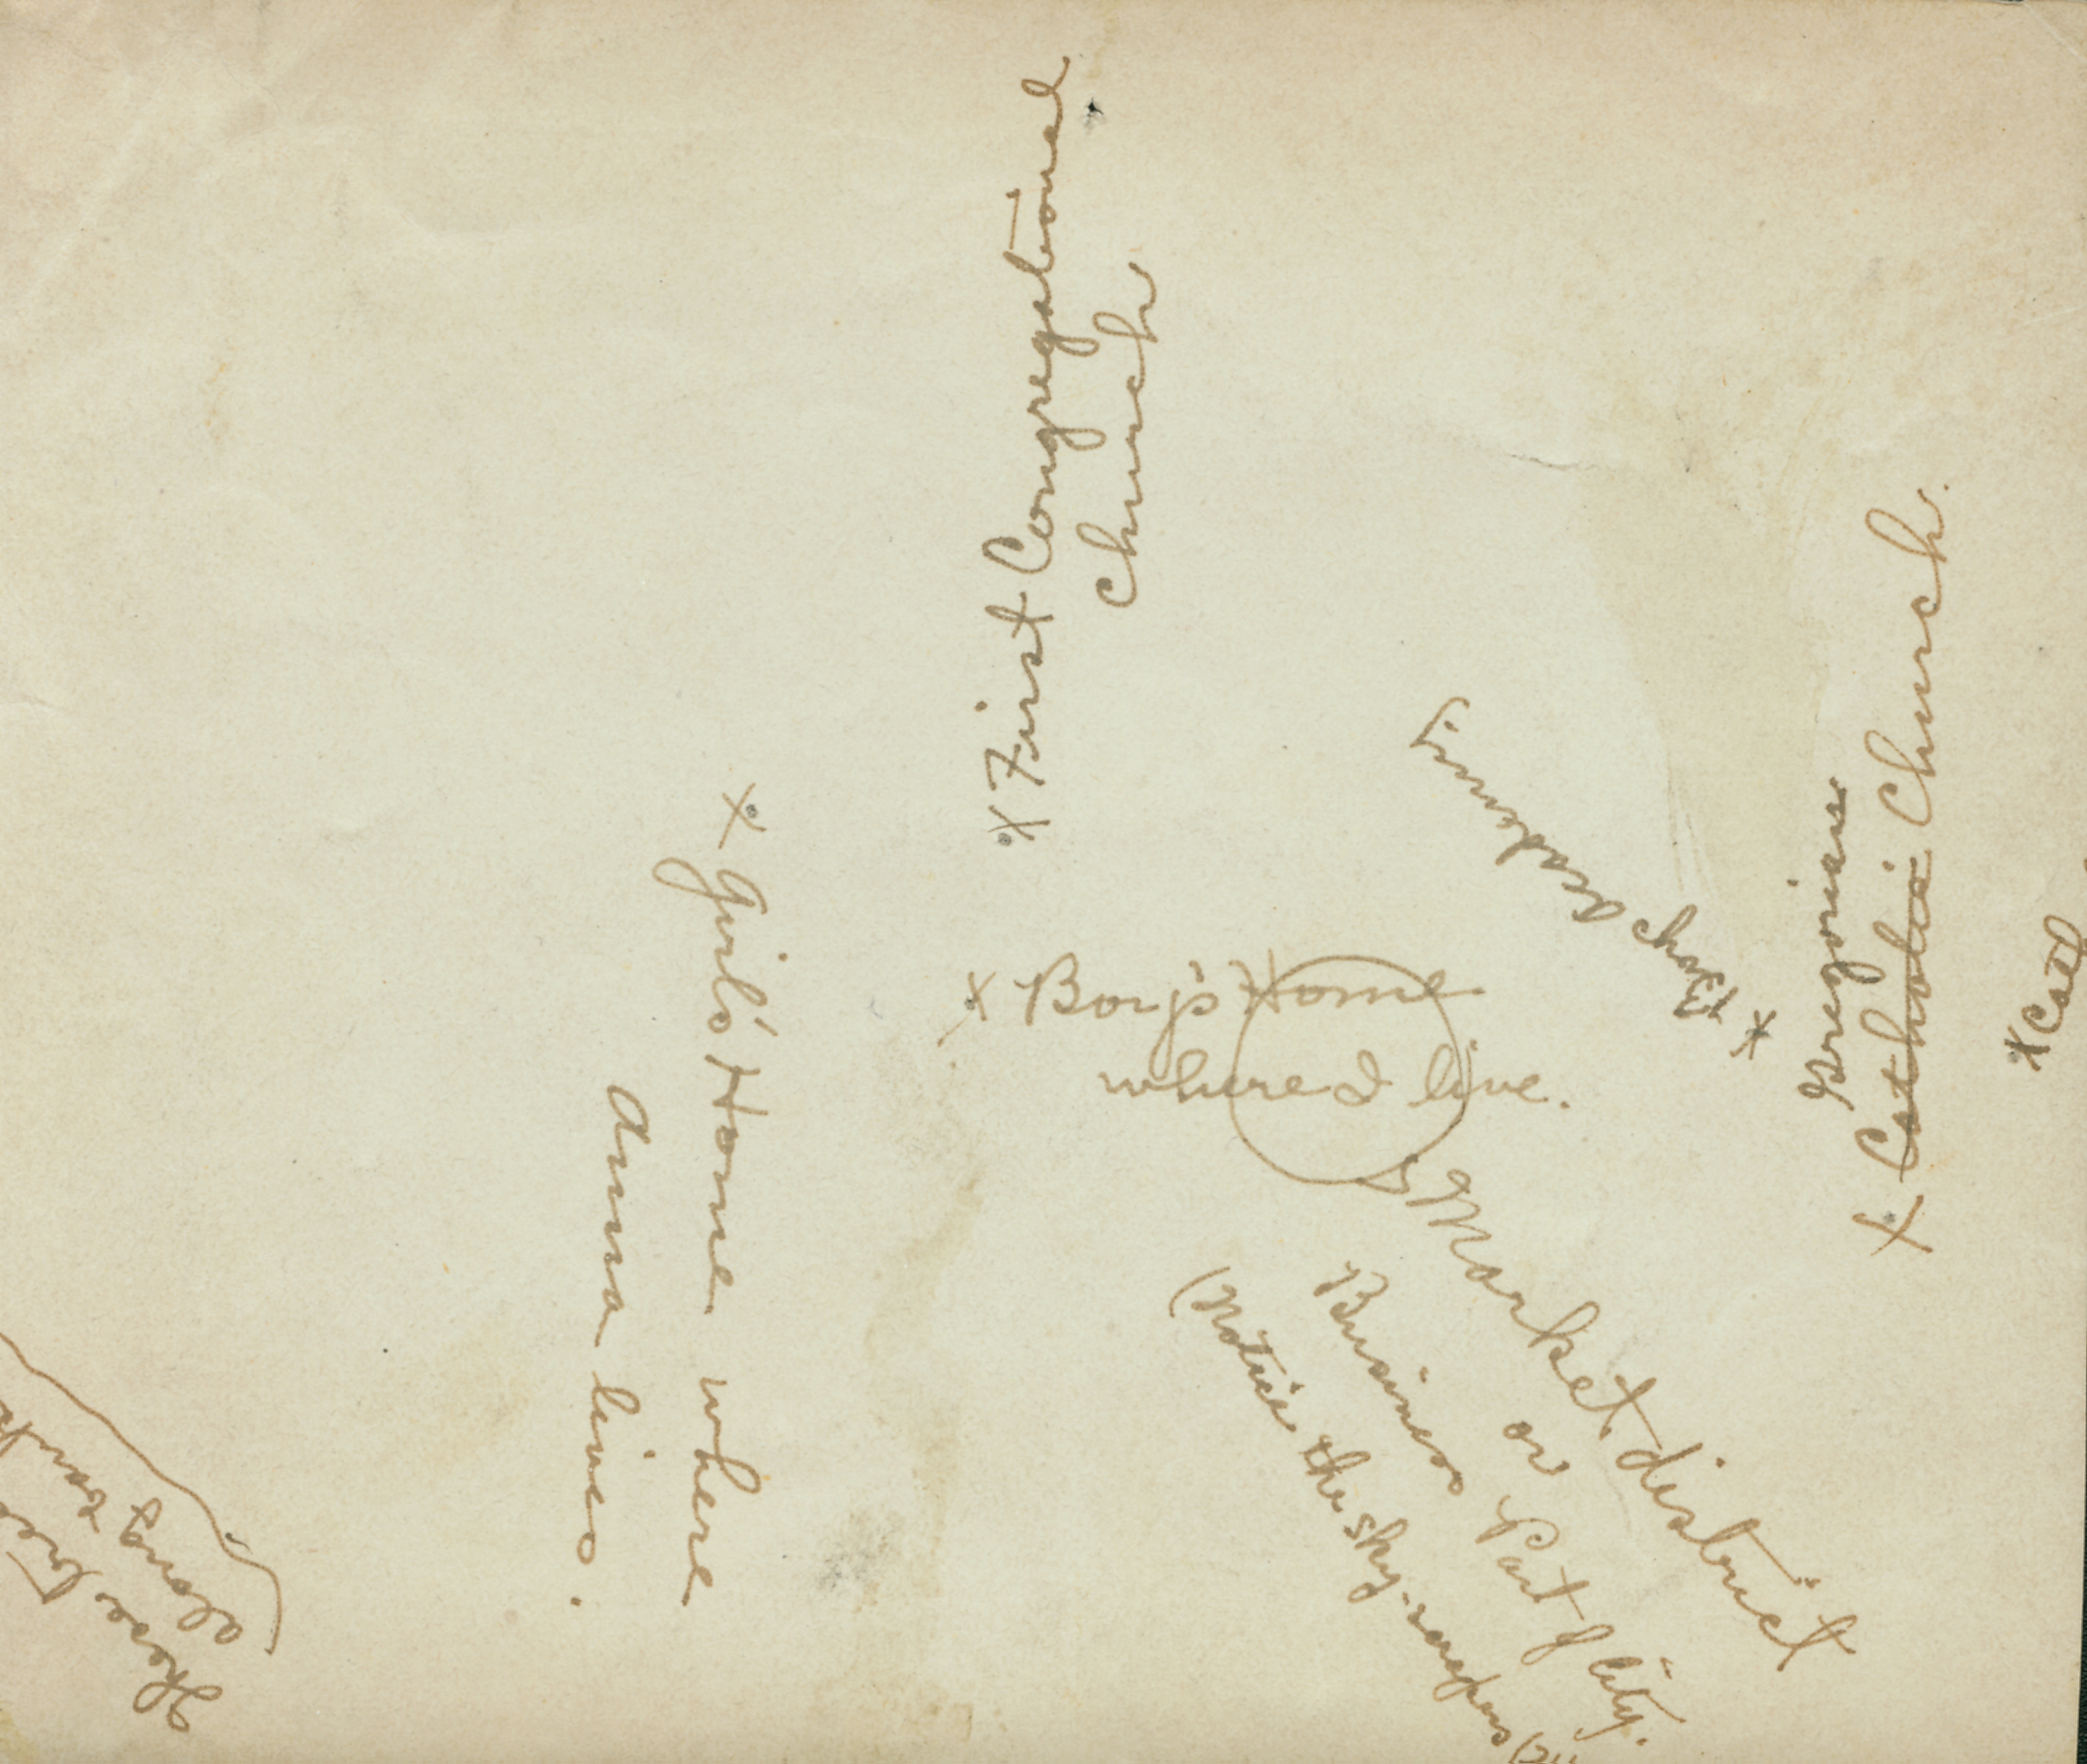 x First Congregational
Church
x Girls' Home where
Anna lives.
x Boy's Home
where I live.
x Boys Academy.
Gregorian
x Catholic Church.
x
Market district
or
Business Part of City.
(Notice the sky-scrapers
These
along